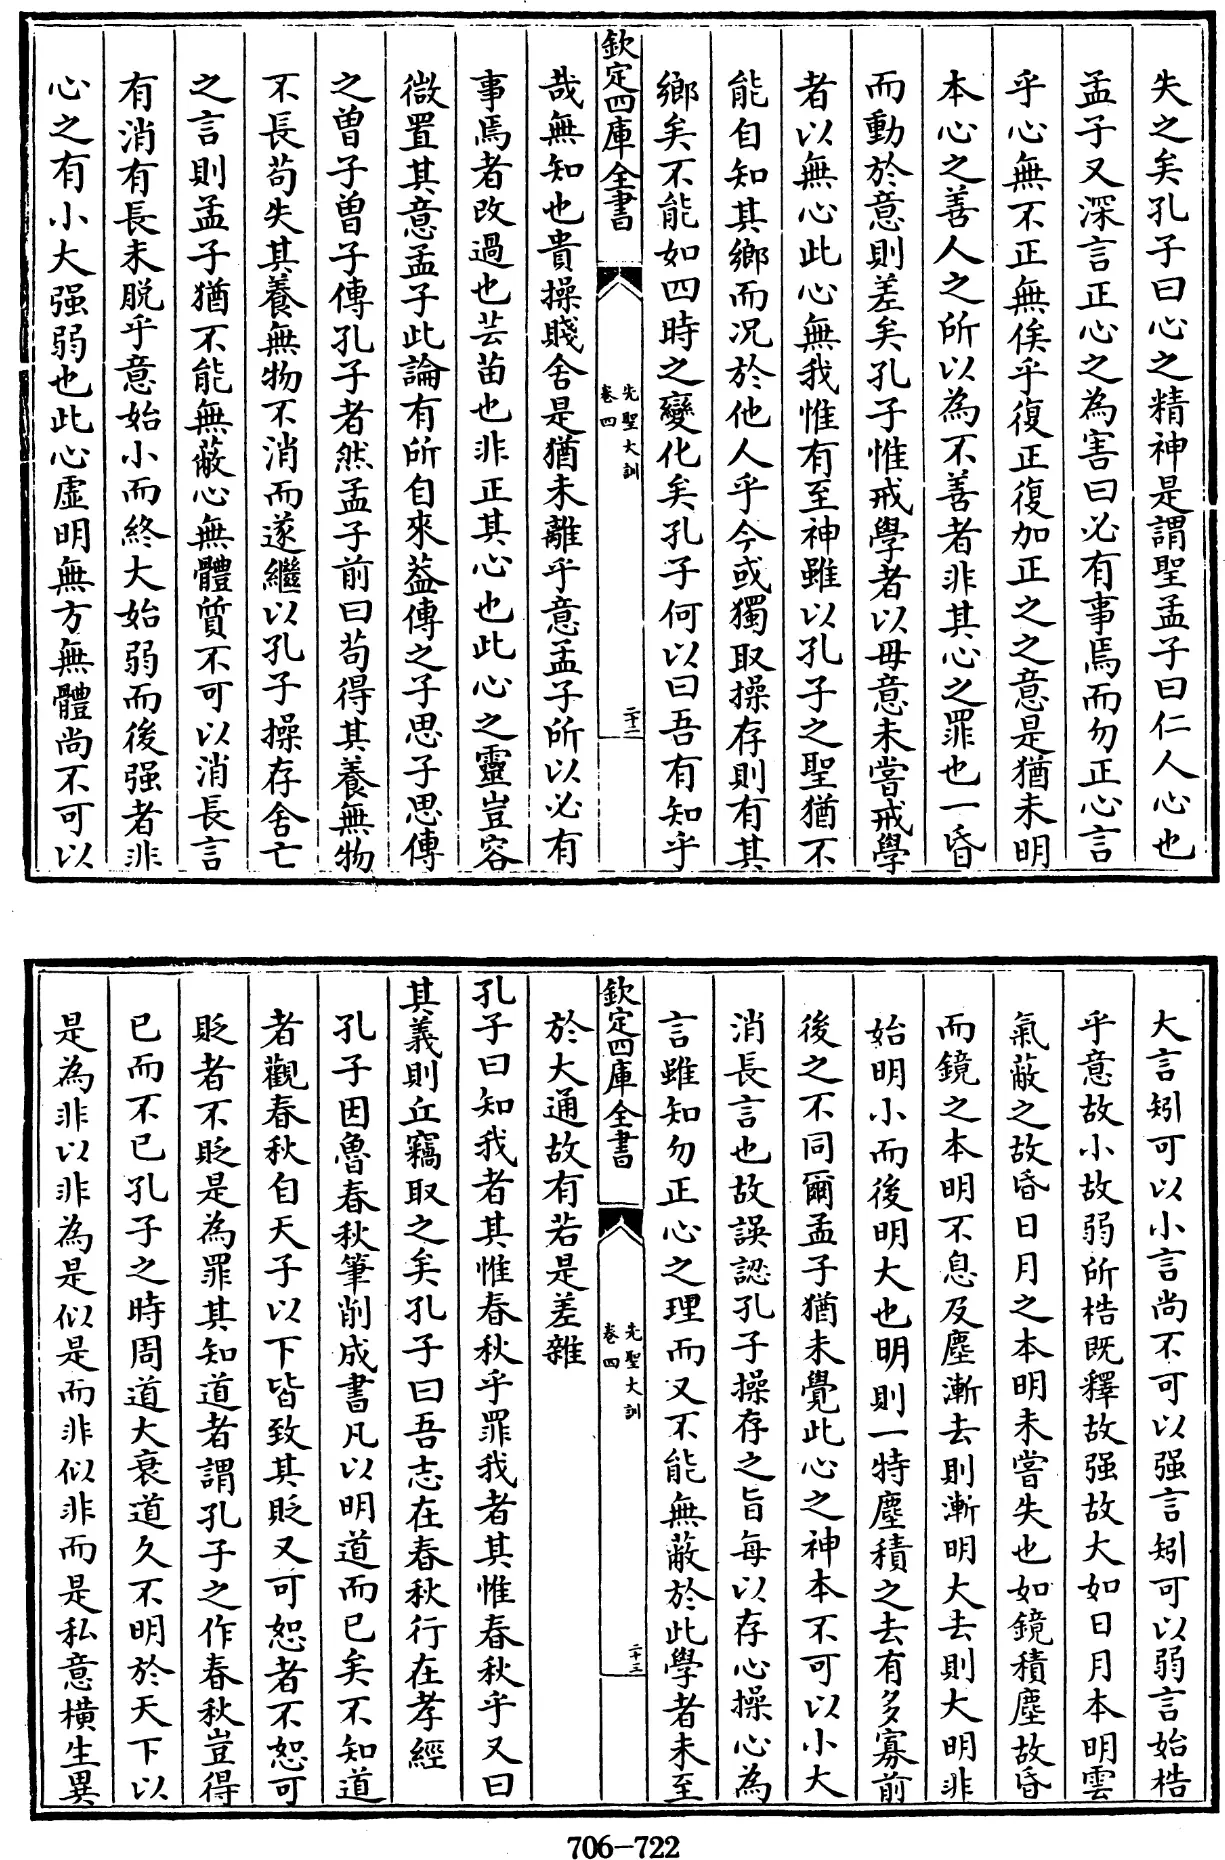 失之矣孔子曰心之精神是謂聖孟子曰仁人心也
孟子又深言正心之為害曰必有事焉而勿正心言
乎心無不正無俟乎復正復加正之之意是猶未明
本心之善人之所以為不善者非其心之罪也一昏
而動於意則差矣孔子惟戒學者以毋意未嘗戒學
者以無心此心無我惟有至神雖以孔子之聖猶不
能自知其鄉而况於他人乎今或獨取操存則有其
鄉矣不能如四時之變化矣孔子何以曰吾有知乎
欽定四庫全書
先聖大訓
卷四
二十二
哉無知也貴操賤舍是猶未離乎意孟子所以必有
事焉者改過也芸苗也非正其心也此心之靈豈容
微置其意孟子此論有所自來葢傳之子思子思傳
之曾子曾子傳孔子者然孟子前曰苟得其養無物
不長苟失其養無物不消而遂繼以孔子操存舍亡
之言則孟子猶不能無蔽心無體質不可以消長言
有消有長未脱乎意始小而終大始弱而後强者非
心之有小大强弱也此心虚明無方無體尚不可以
大言矧可以小言尚不可以强言矧可以弱言始梏
乎意故小故弱所梏既釋故强故大如日月本明雲
氣蔽之故昏日月之本明未嘗失也如鏡積塵故昏
而鏡之本明不息及塵漸去則漸明大去則大明非
始明小而後明大也明則一特塵積之去有多寡前
後之不同爾孟子猶未覺此心之神本不可以小大
消長言也故誤認孔子操存之旨每以存心操心為
言雖知勿正心之理而又不能無蔽於此學者未至
欽定四庫全書
先聖大訓
卷四
二十三
於大通故有若是差雜
孔子曰知我者其惟春秋乎罪我者其惟春秋乎又曰
其義則丘竊取之矣孔子曰吾志在春秋行在孝經
孔子因魯春秋筆削成書凡以明道而已矣不知道
者觀春秋自天子以下皆致其貶又可恕者不恕可
貶者不貶是為罪其知道者謂孔子之作春秋豈得
已而不已孔子之時周道大衰道久不明於天下以
是為非以非為是似是而非似非而是私意橫生異
706-722